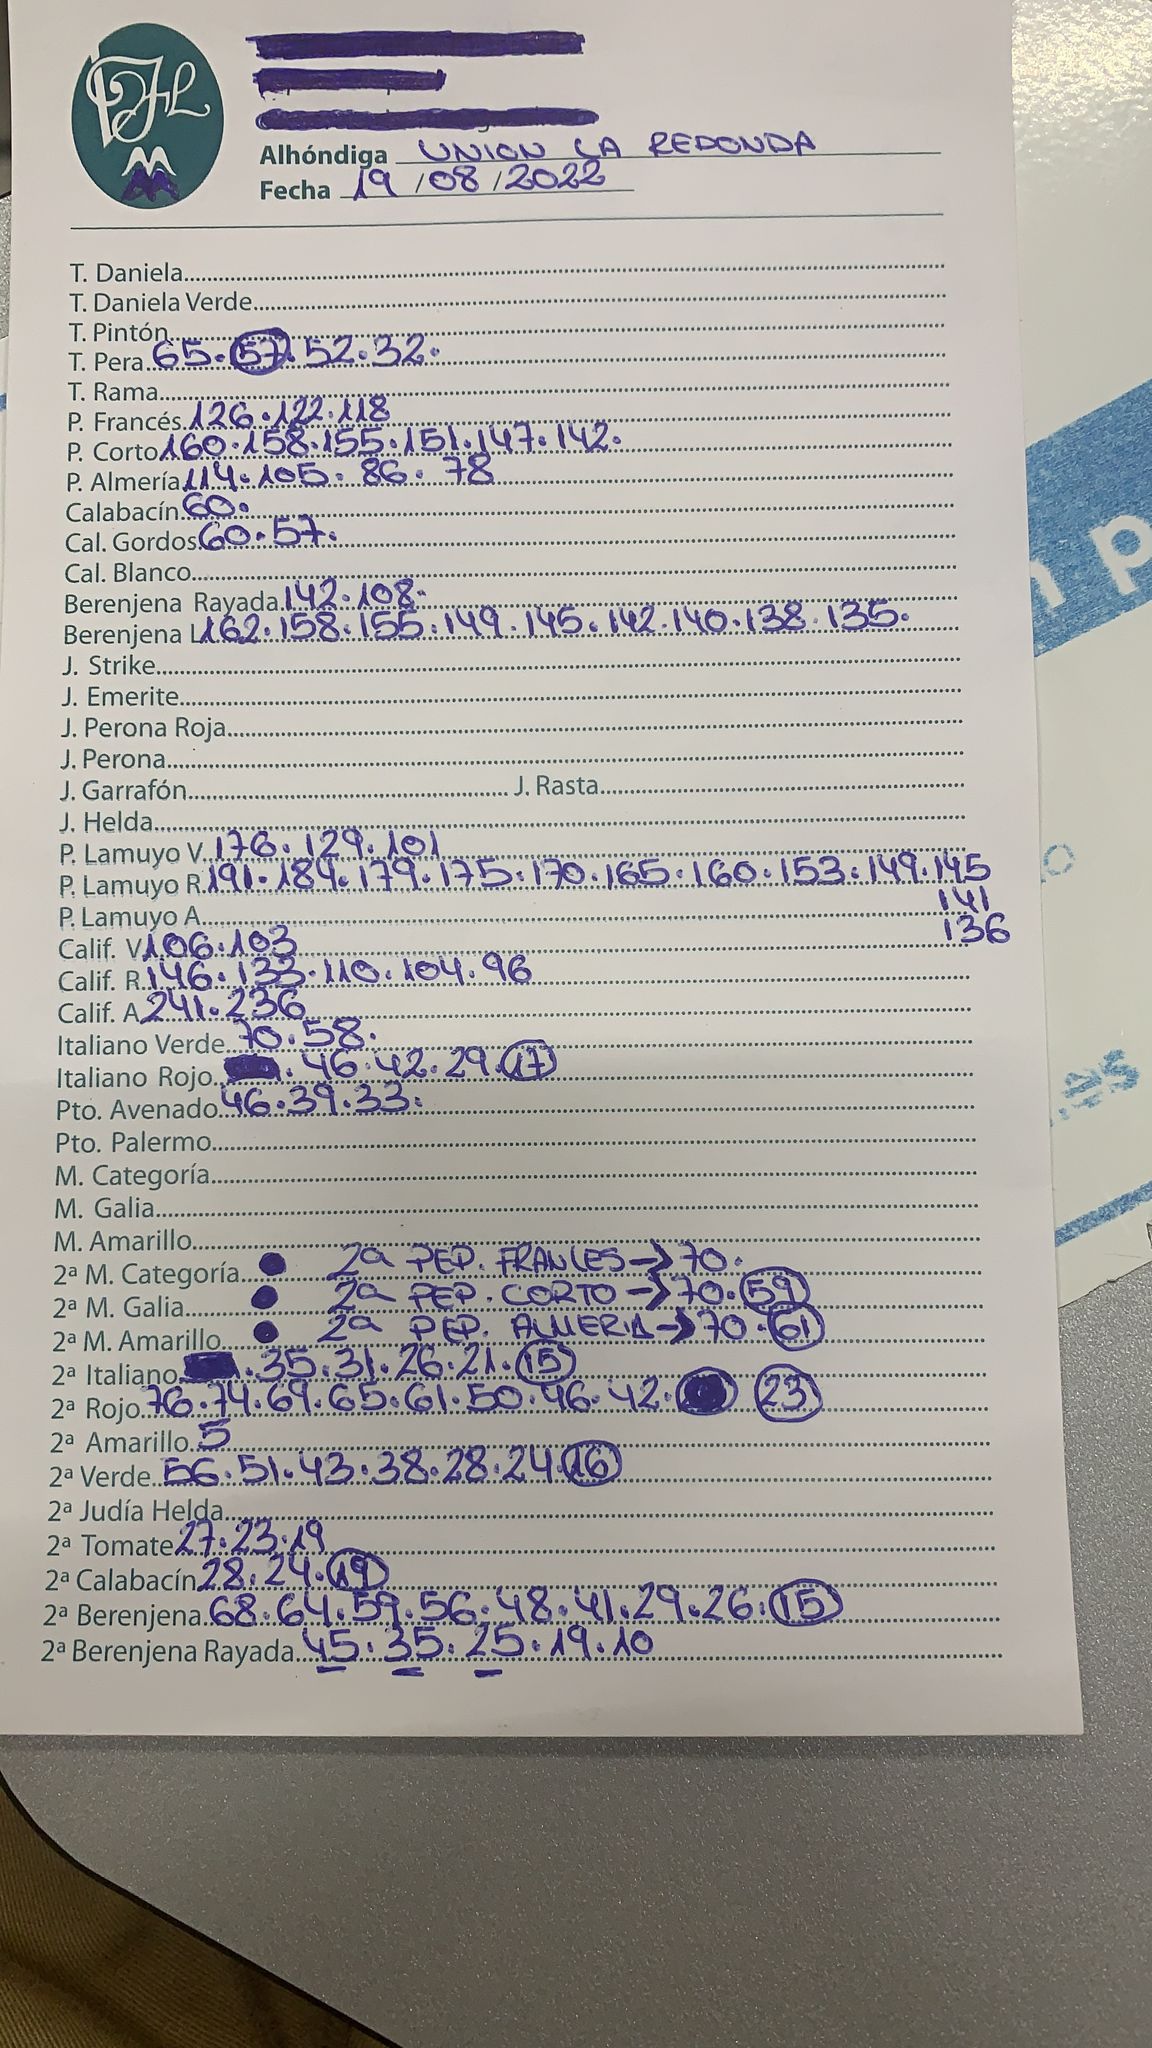 Alhóndiga UNION LA REDONDA
Fecha 19/08/2022
T. Daniela
T. Daniela Verde
T. Pintón
T. Pera 65.57.52.32.
T. Rama
P. Francés 126.122.118
P. Corto 160.158.155.151.147.142.
P. Almería 114.105.86.78
Calabacín 60.
Cal. Gordos 60.57.
Cal. Blanco
Berenjena Rayada 142.108.
Berenjena L 162.158.155.149.145.142.140.138.135.
J. Strike
J. Emerite
J. Perona Roja
J. Perona
J. Garrafón J. Rasta
J. Helda
P. Lamuyo V. 176.129.101
P. Lamuyo R. 191.184.179.175.170.165.160.153.149.145
141
P. Lamuyo A
136
Calif. V 106.103
Calif. R. 146.133.110.104.96
Calif. A 241.236
Italiano Verde 70.58.
Italiano Rojo .46.42.29.17
Pto. Avenado 46.39.33.
Pto. Palermo
M. Categoría
M. Galia
M. Amarillo
2ª M. Categoría 2ª PEP. FRANCES → 70.
2ª M. Galia 2ª PEP. CORTO → 70.59
2ª M. Amarillo 2ª PEP. ALMERIA → 70.61
2ª Italiano .35.31.26.21.15
2ª Rojo 76.74.69.65.61.50.46.42. 23
2ª Amarillo 5
2ª Verde 56.51.43.38.28.24.16
2ª Judía Helda
2ª Tomate 27.23.19
2ª Calabacín 28.24.19
2ª Berenjena 68.64.59.56.48.41.29.26.15
2ª Berenjena Rayada 45.35.25.19.10